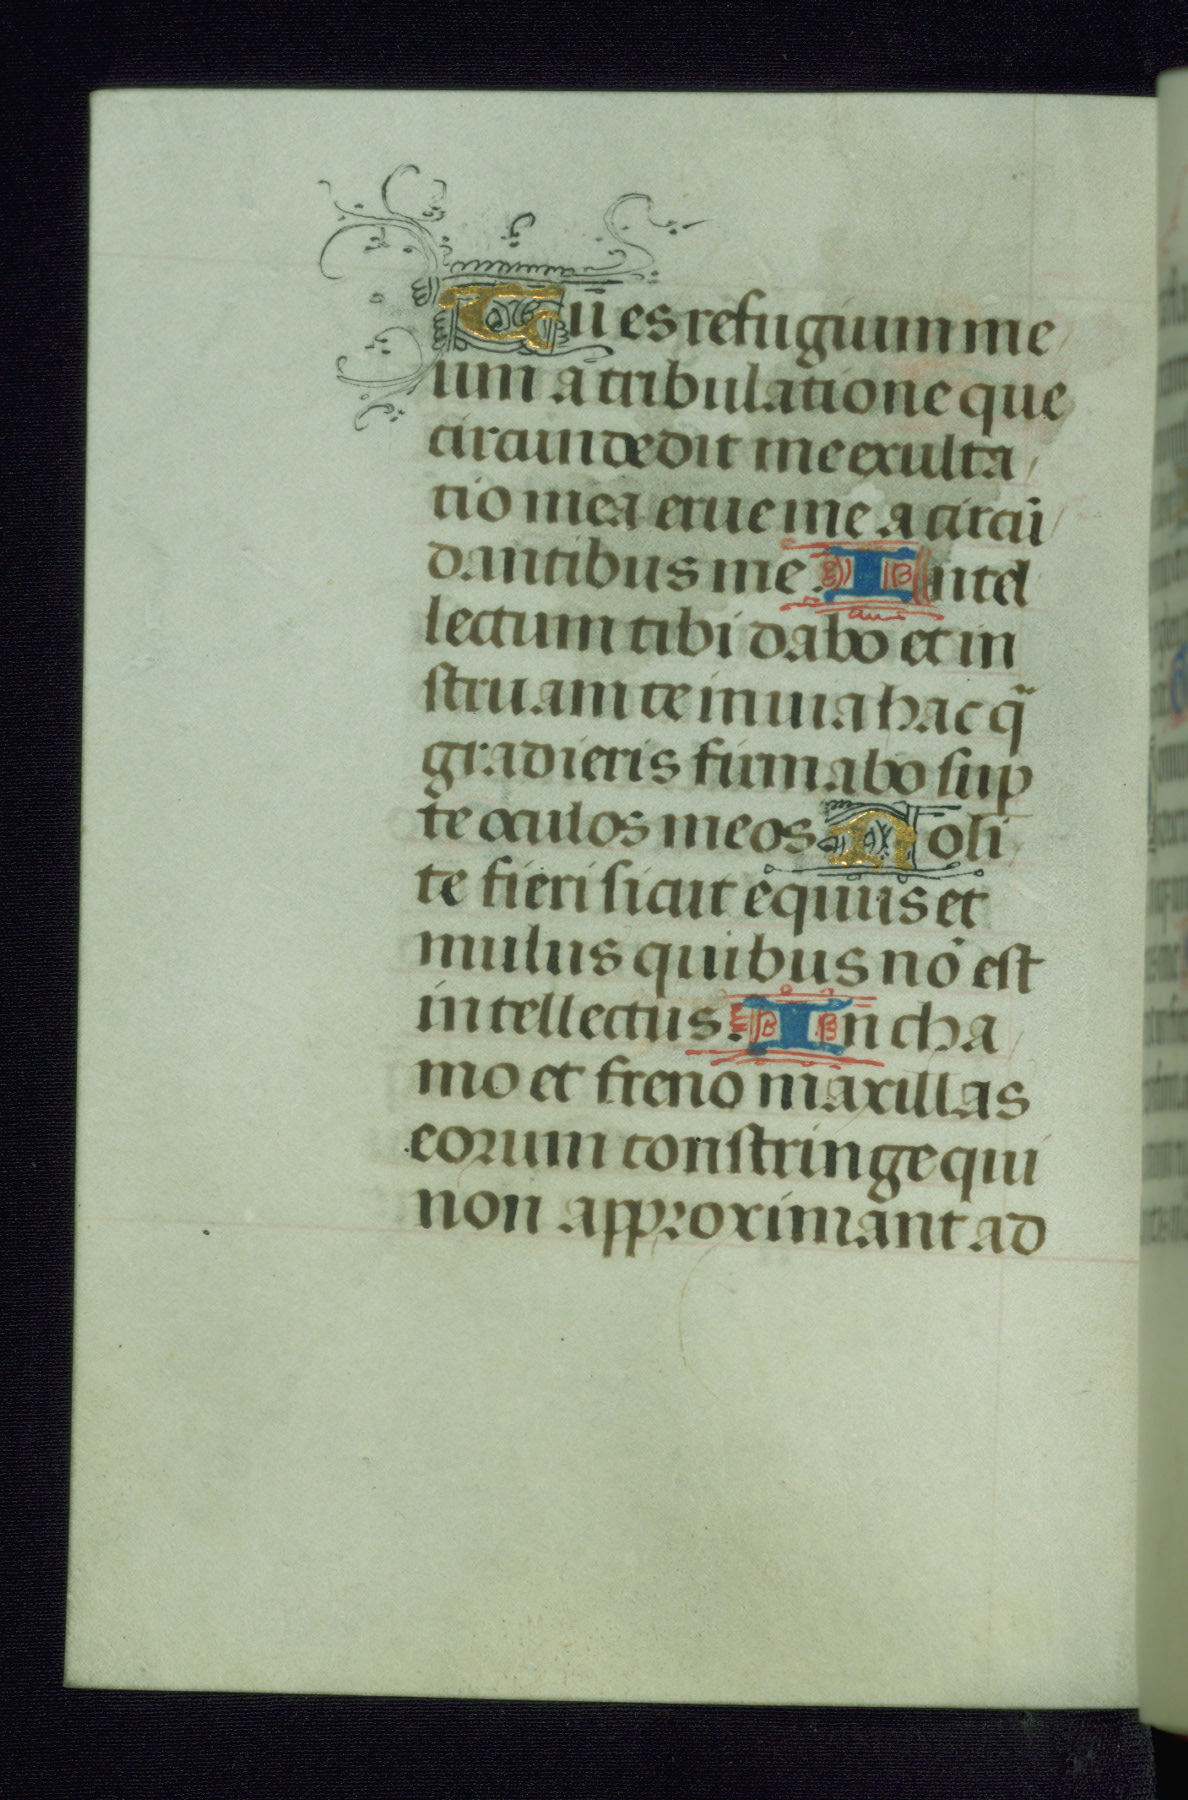 Tu es refugium me
um a tribulatione que
circumdedit me exulta
tio mea erue me a circū
dantibus me. Intel
lectum tibi dabo et in
struam te in uia hac q̄
gradieris firmabo sup
te oculos meos. Noli
te fieri sicut equus et
mulus quibus nō est
intellectus. In cha
mo et freno maxillas
eorum constringe qui
non approximant ad